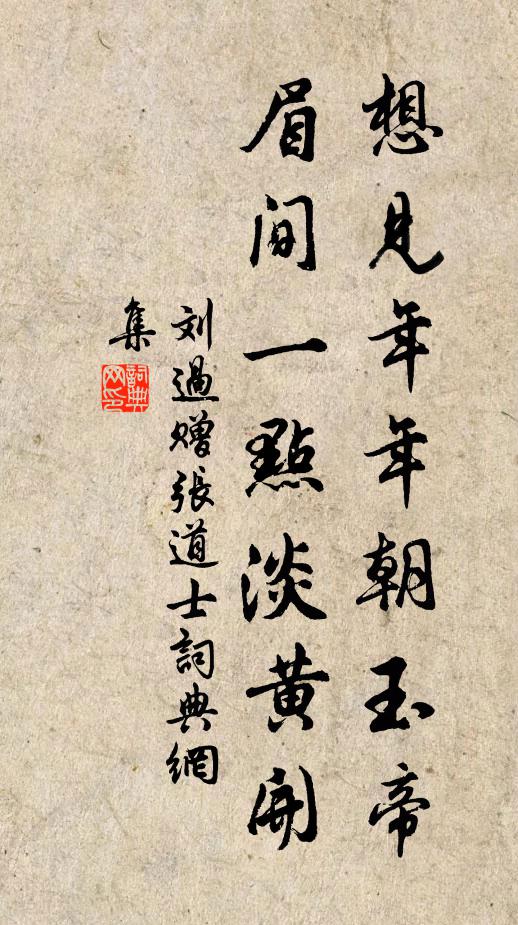 想見年年朝玉帝
眉间一點淡黄開
刘過贈張道士詞典網
集
詞典
网印